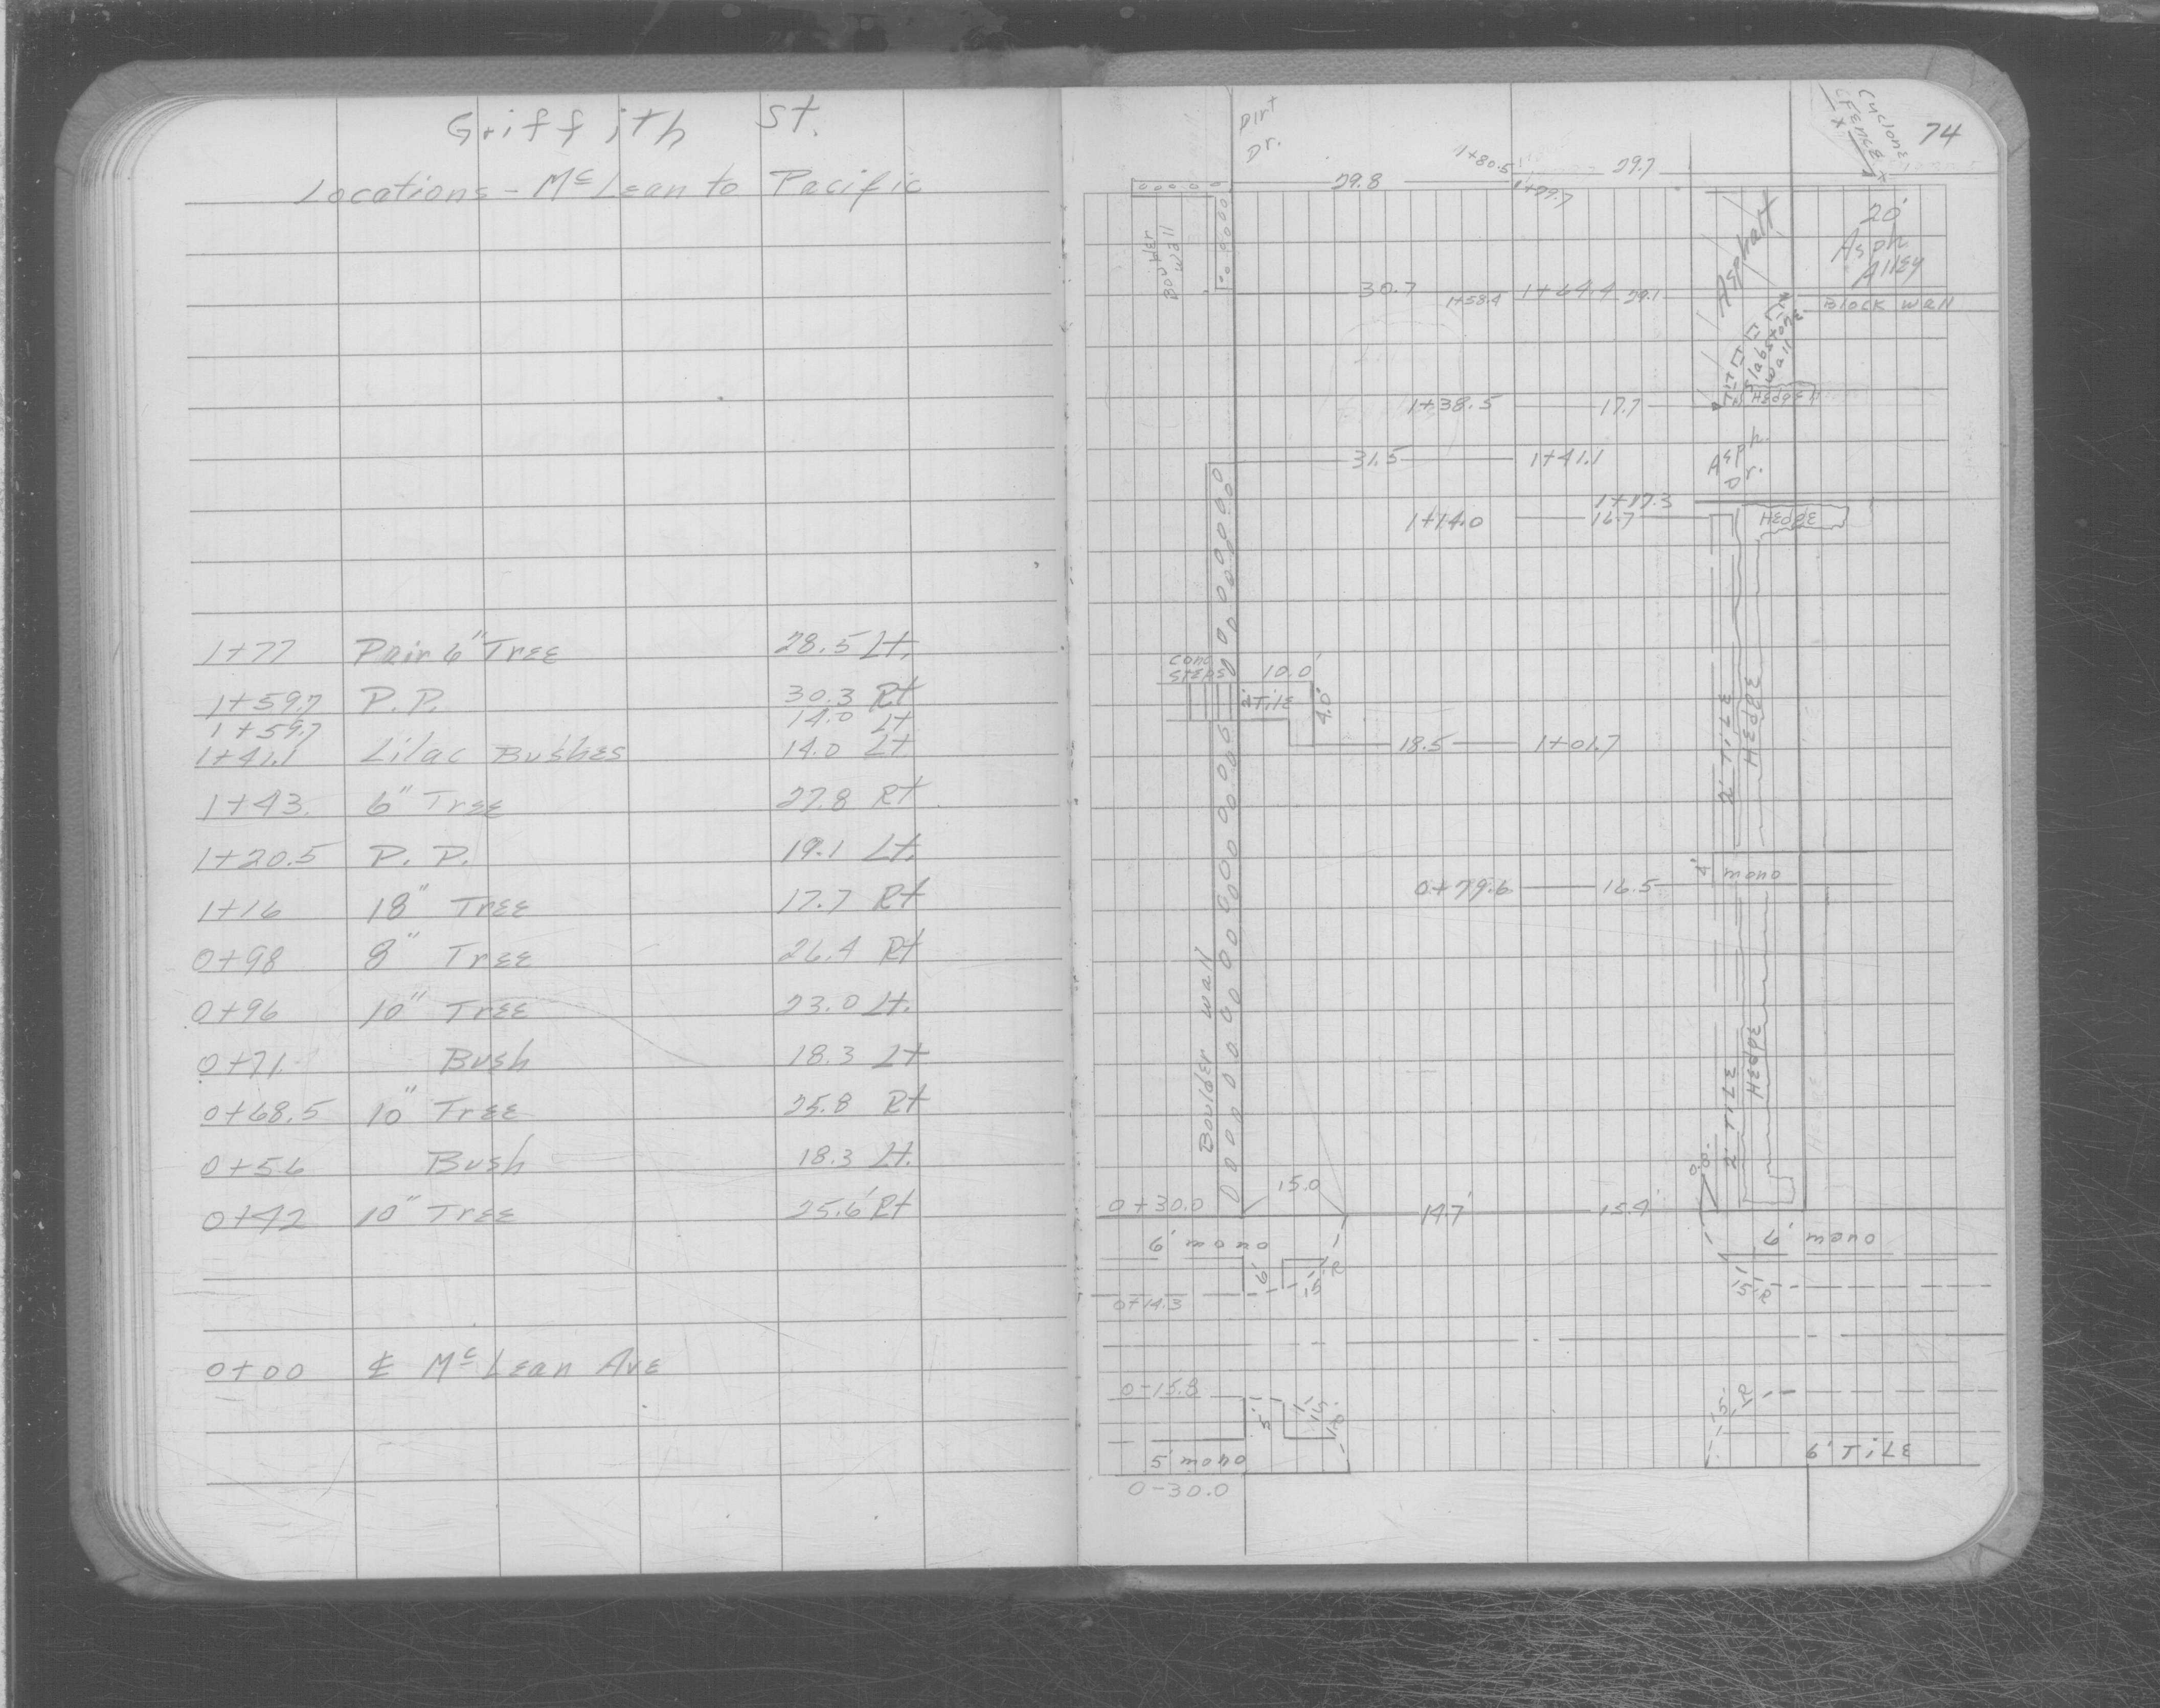 Griffith St.
Locations - Mc Lean to Pacific
1+77 Pair 6" Tree 28.5 Lt.
1+59.7 P.P. 30.3 Rt
1+59.7 14.0 Lt
1+41.1 Lilac Bushes 14.0 Lt
1+43. 6" Tree 27.8 Rt
1+20.5 P.P. 19.1 Lt.
1+16 18" Tree 17.7 Rt
0+98 8" Tree 26.4 Rt
0+96 10" Tree 23.0 Lt.
0+71. Bush 18.3 Lt
0+68.5 10" Tree 25.8 Rt
0+56 Bush 18.3 Lt.
0+42 10" Tree 25.6' Rt
0+00 ℄ Mc Lean Ave
74
Dirt
Dr.
Cyclone
Fence
29.8 1+80.5 29.7
1+79.7
Boulder
Wall
Asphalt
20'
Asph
Alley
30.7 1+58.4 1+64.4 29.1
Block Wall
Slabstone
Wall
1+38.5 17.7
Hedge
31.5 1+41.1
Asph.
Dr.
1+17.3
1+14.0 16.7
Hedge
Conc
Steps 10.0'
2' Tile 4.0'
18.5 1+01.7
2' Tile
Hedge
0+79.6 16.5 4' mono
Boulder Wall
2' Tile
Hedge
0+30.0 15.0
14.7' 15.4'
0.0.
6' mono 6' mono
6' 15' R
15' R
0+14.3
0-15.8
5' 15' R
15' R
5' mono 6' Tile
0-30.0